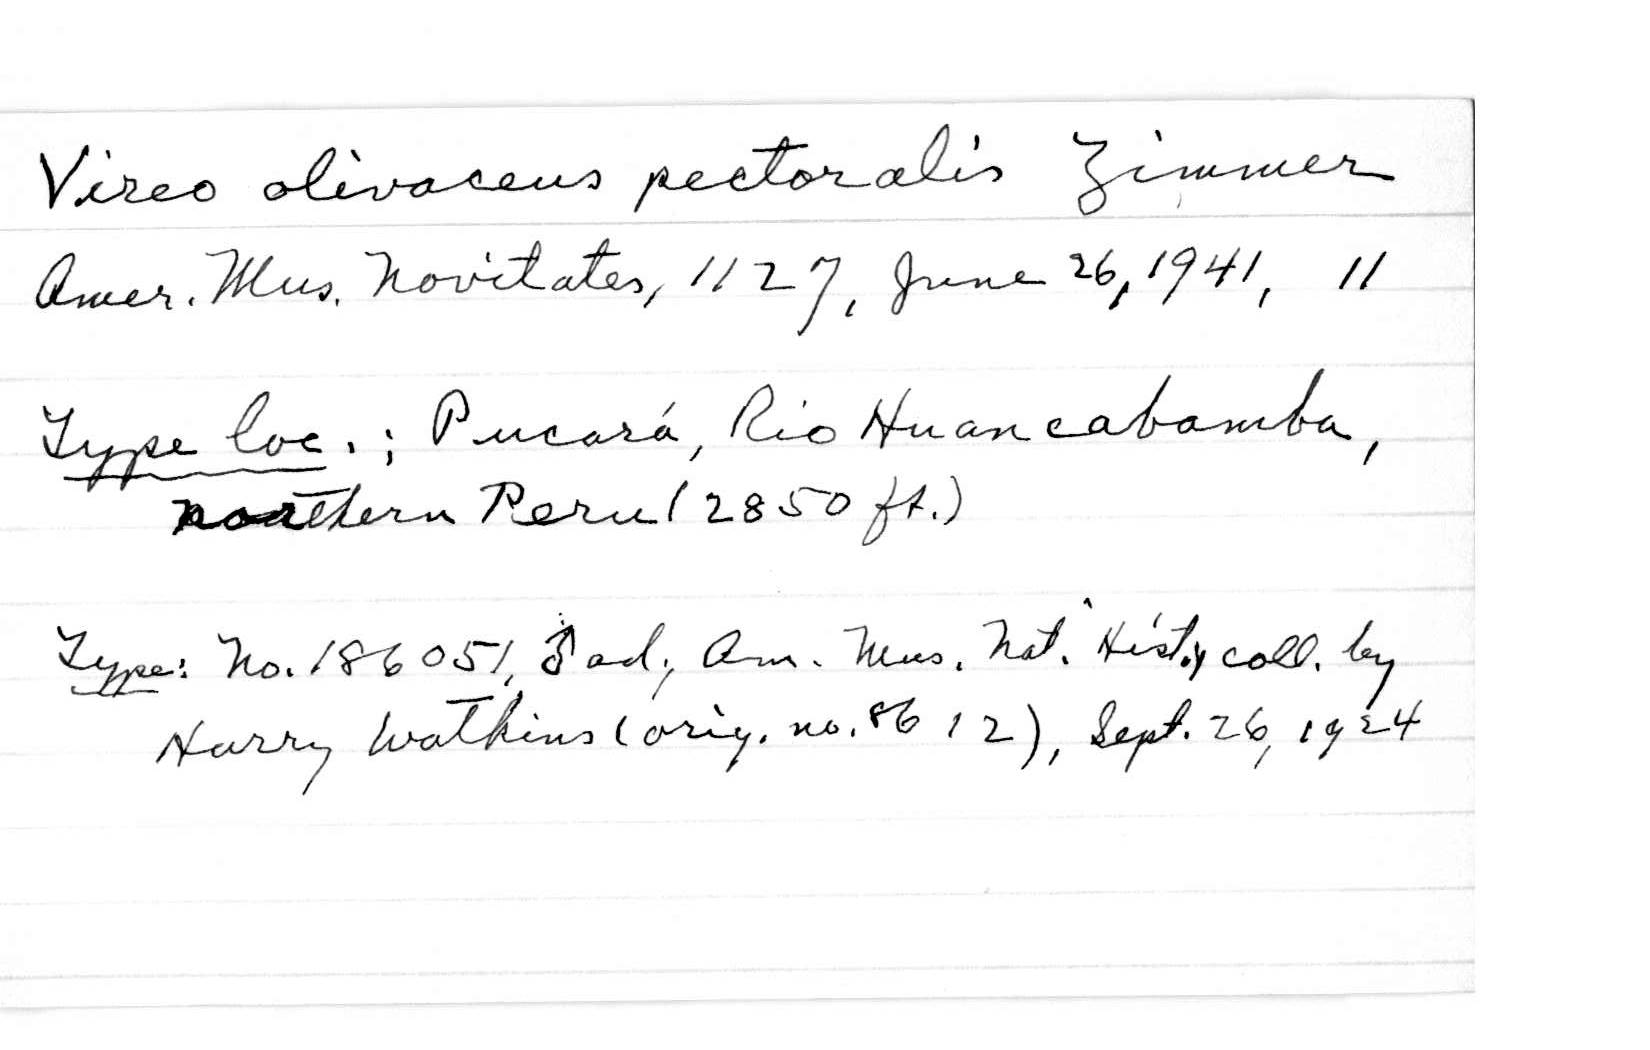 Vireo olivaceus pectoralis Zimmer
Amer. Mus. Novitates, 1127, June 26, 1941, 11
Type loc.; Pucará, Rio Huancabamba,
northern Peru (2850 ft.)
Type: No. 186051, ♂ ad; Am. Mus. Nat. Hist., coll. by
Harry Watkins (orig. no. 8612), Sept. 26, 1924